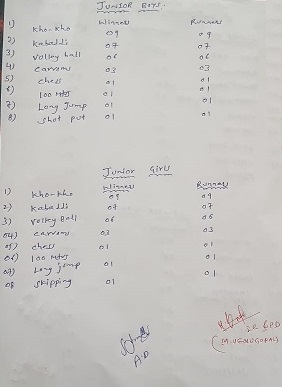 Junior Boys.
Winners Runners
1) Kho-Kho 09 09
2) Kabaddi 07 07
3) Volley ball 06 06
4) Carroms 03 03
5) Chess 01 01
6) 100 Mts 01 01
7) Long Jump 01 01
8) Shot put 01 01
Junior Girls
Winners Runners
1) Kho-Kho 09 09
2) Kabaddi 07 07
3) Volley Ball 06 06
04) Carroms 03 03
05) Chess 01 01
06) 100 Mtrs 01
07) Long jump 01 01
08 Skipping 01
A.D
(M.VENUGOPAL)